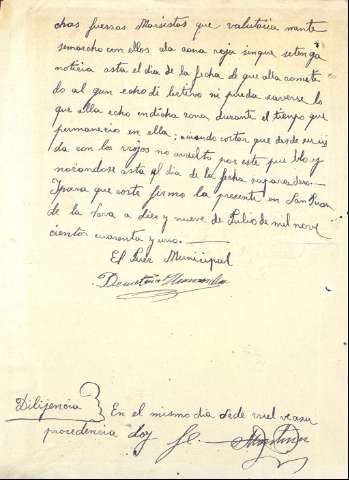 chas fuersas Marsistas que valutaria mente
semarcho con ellos ala zona roja sinque setenga
noticia asta el dia de la fecha de que alla comete
do al gun echo delictivo ni pueda saverse lo
que alla echo endicha zona durante el tiempo que
permanecio en ella; aciendo costar que desde su ui
da con los rrojos no avuelto por este pueblo y
niorandose asta el dia de la fecha su paradero.—
Ipara que coste firmo la presente en San Juan
de la Nava a diez y nueve de Julio de mil nove
cientos cuarenta y uno.—
El Juez Municipal
Demetrio Hernandez
Dilijencia En el mismo dia sede vuelve asu
procedencia doy fe.—